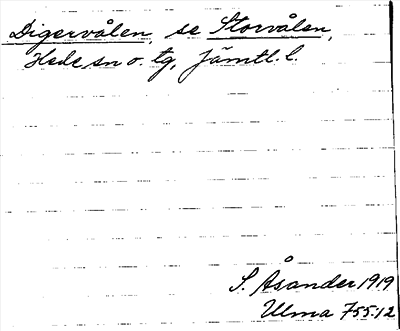 Digervålen, se Storvålen,
Hede sn o. tg, Jämtl. l.
S. Åsander 1919
Ulma 755:12